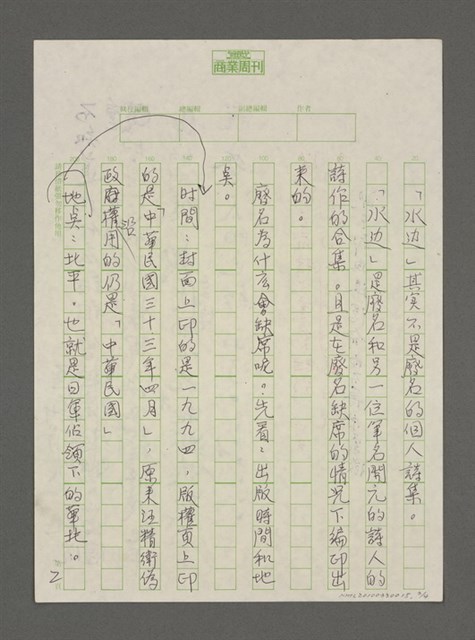 商業周刊
總編輯
副總編輯
作者
「水边」其实不是廢名的個人詩集。
「水边」是廢名和另一位筆名開元的詩人的
詩作的合集。且是在廢名缺席的情况下編印出
來的。
廢名為什么會缺席呢。先看：出版時間和地
奌。
时間：封面上印的是一九九四，版權頁上印
的是「中華民國三十三年四月」，原來汪精衛偽
政府沿用的仍是「中華民國」
地奌：北平。也就是日軍佔領下的華北。
2